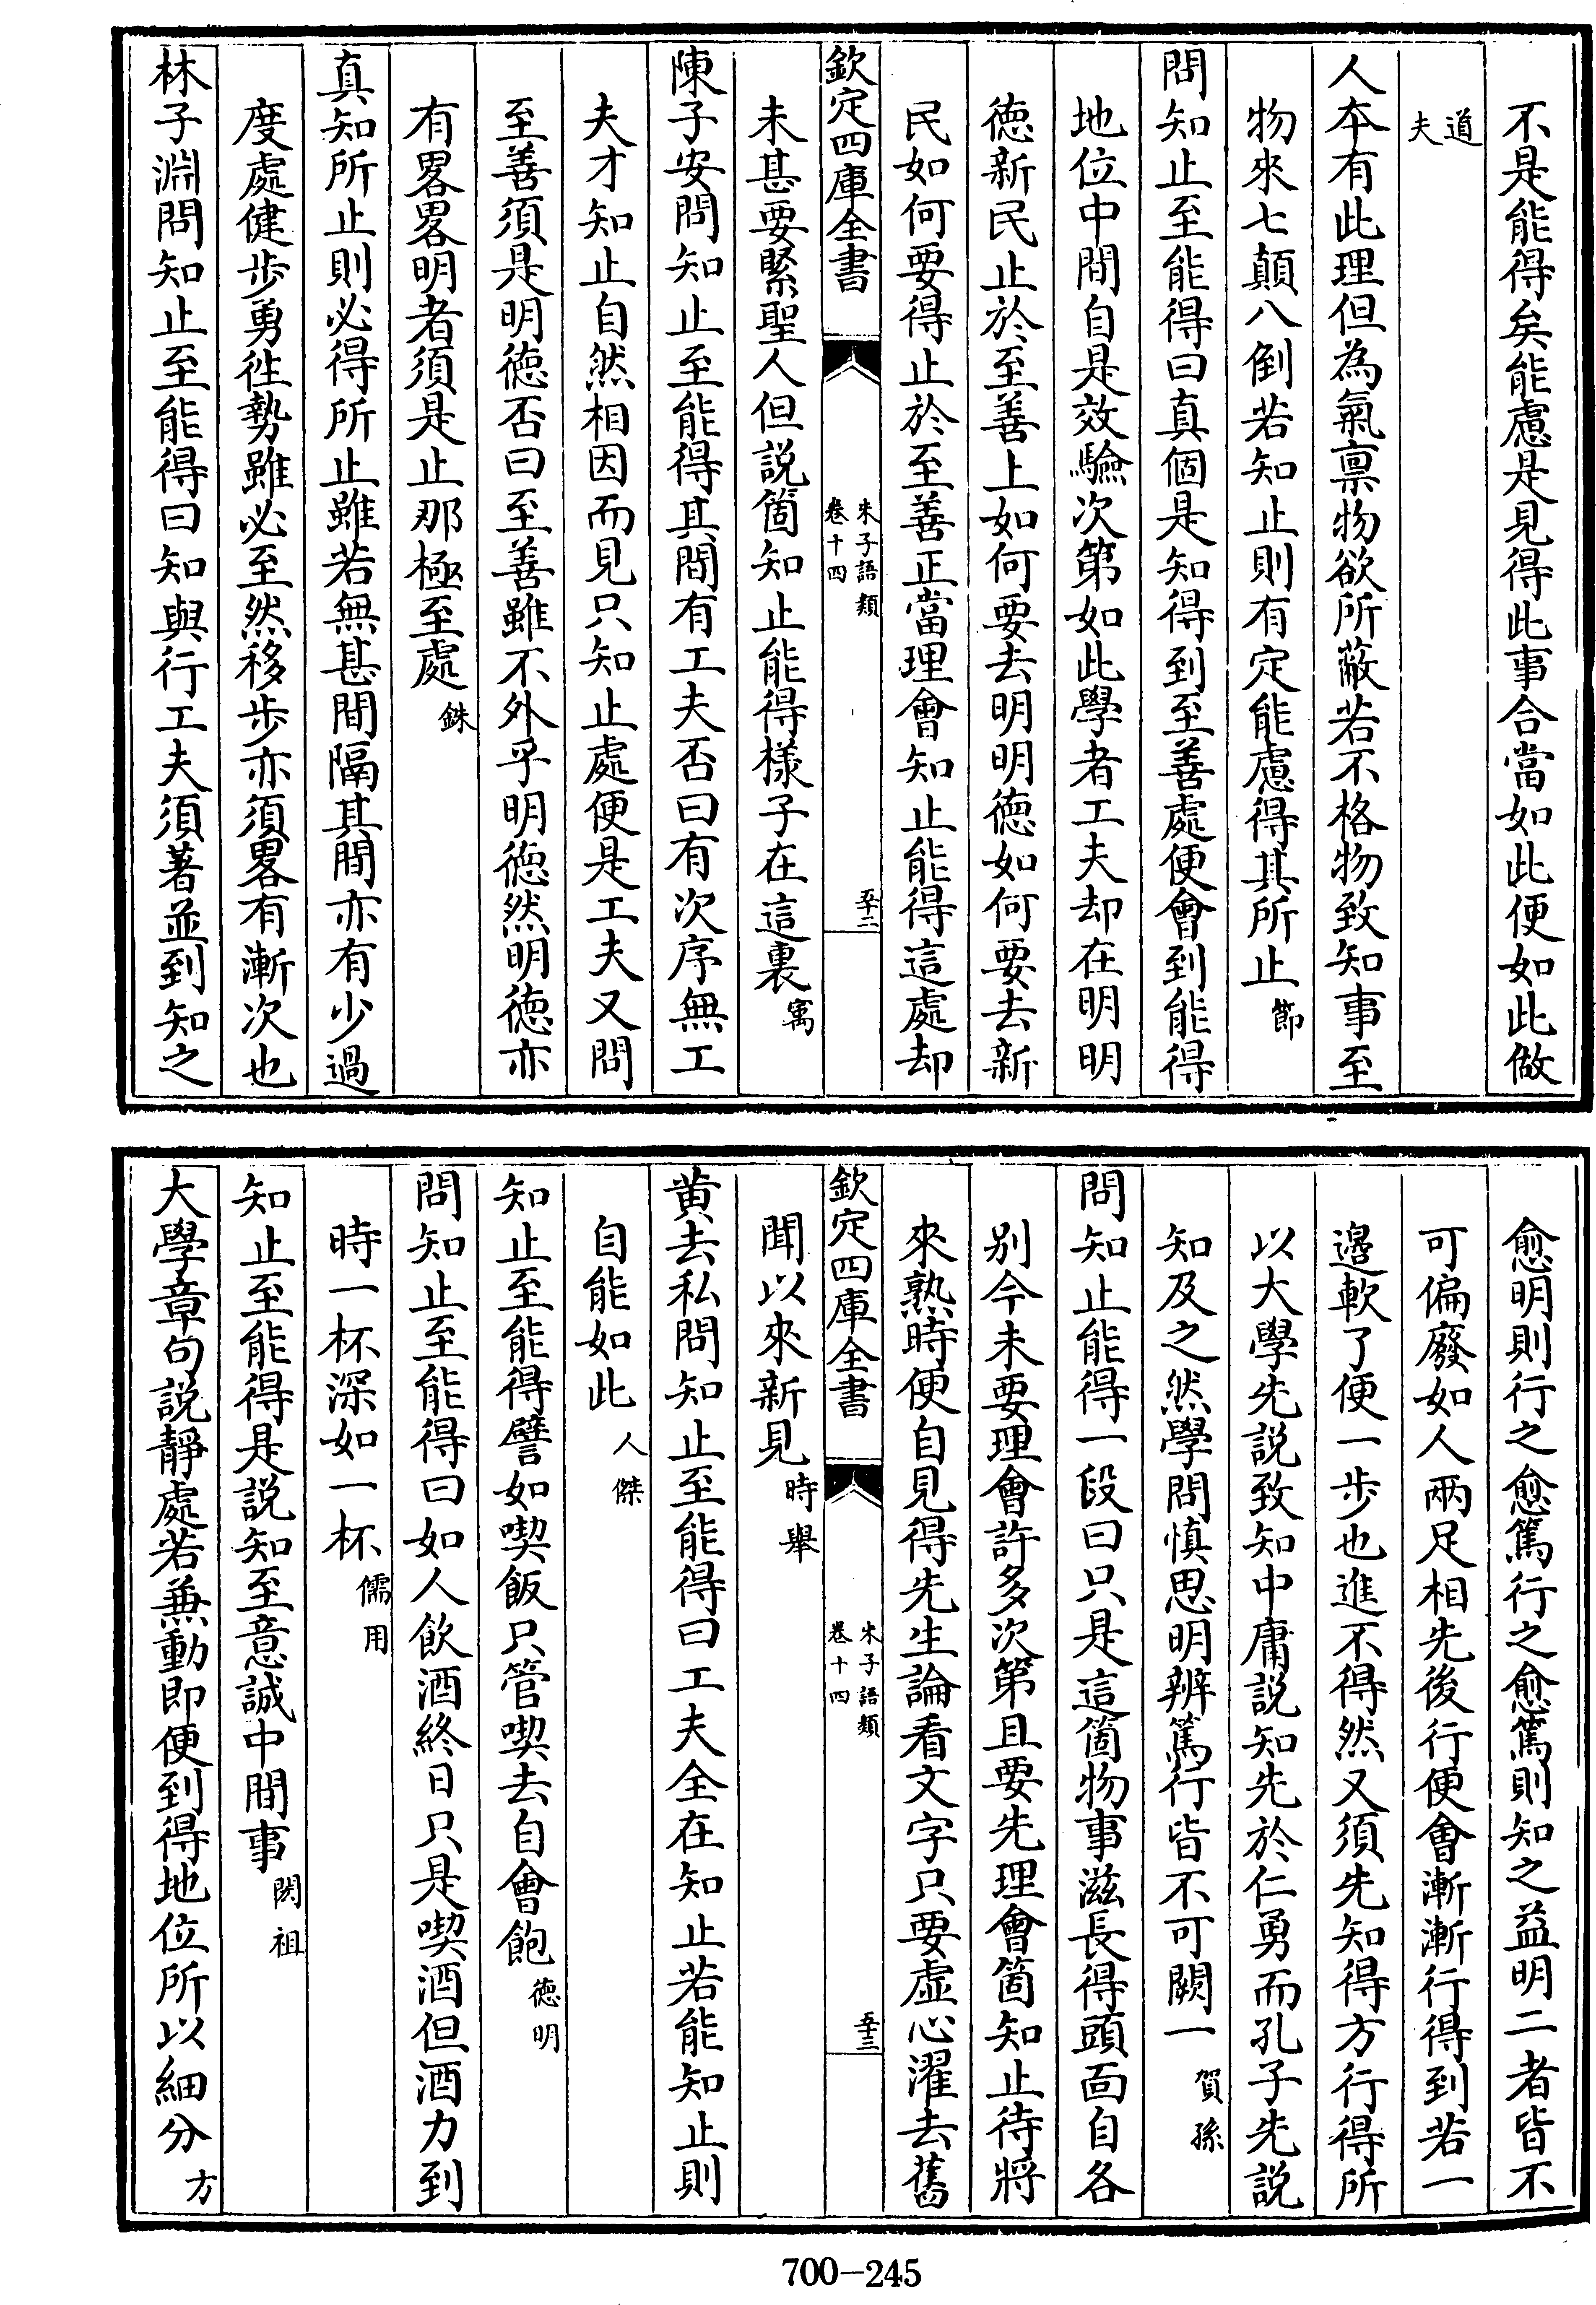 不是能得矣能慮是見得此事合當如此便如此做
道夫
人本有此理但為氣禀物欲所蔽若不格物致知事至
物來七顛八倒若知止則有定能慮得其所止節
問知止至能得曰真個是知得到至善處便會到能得
地位中間自是效驗次第如此學者工夫却在明明
德新民止於至善上如何要去明明德如何要去新
民如何要得止於至善正當理會知止能得這處却
欽定四庫全書
朱子語類
卷十四
五十二
未甚要緊聖人但説箇知止能得樣子在這裏㝢
陳子安問知止至能得其間有工夫否曰有次序無工
夫才知止自然相因而見只知止處便是工夫又問
至善須是明德否曰至善雖不外乎明德然明德亦
有畧畧明者須是止那極至處銖
真知所止則必得所止雖若無甚間隔其間亦有少過
度處健步勇徃勢雖必至然移步亦須畧有漸次也
林子淵問知止至能得曰知與行工夫須著並到知之
愈明則行之愈篤行之愈篤則知之益明二者皆不
可偏廢如人兩足相先後行便會漸漸行得到若一
邉軟了便一步也進不得然又須先知得方行得所
以大學先説致知中庸説知先於仁勇而孔子先説
知及之然學問慎思明辨篤行皆不可闕一賀孫
問知止能得一段曰只是這箇物事滋長得頭面自各
别今未要理會許多次第且要先理會箇知止待將
來熟時便自見得先生論看文字只要虛心濯去舊
欽定四庫全書
朱子語類
卷十四
五十三
聞以來新見時舉
黄去私問知止至能得曰工夫全在知止若能知止則
自能如此人傑
知止至能得譬如喫飯只管喫去自會飽德明
問知止至能得曰如人飲酒終日只是喫酒但酒力到
時一杯深如一杯儒用
知止至能得是説知至意誠中間事閎祖
大學章句説靜處若兼動即便到得地位所以細分方
700-245